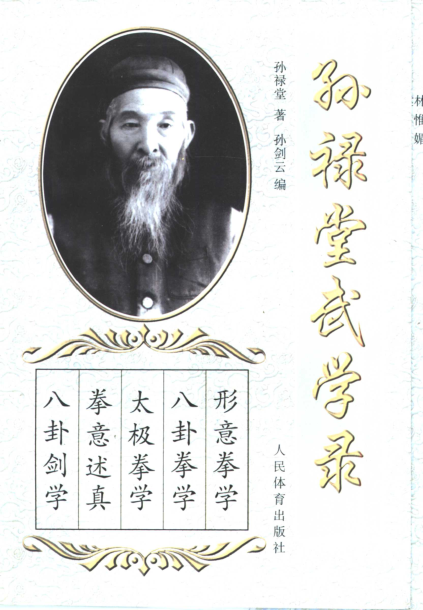 孙禄堂武学录
孙禄堂 著 孙剑云 编
人民体育出版社
形意拳学
八卦拳学
太极拳学
拳意述真
八卦剑学
林惟媚